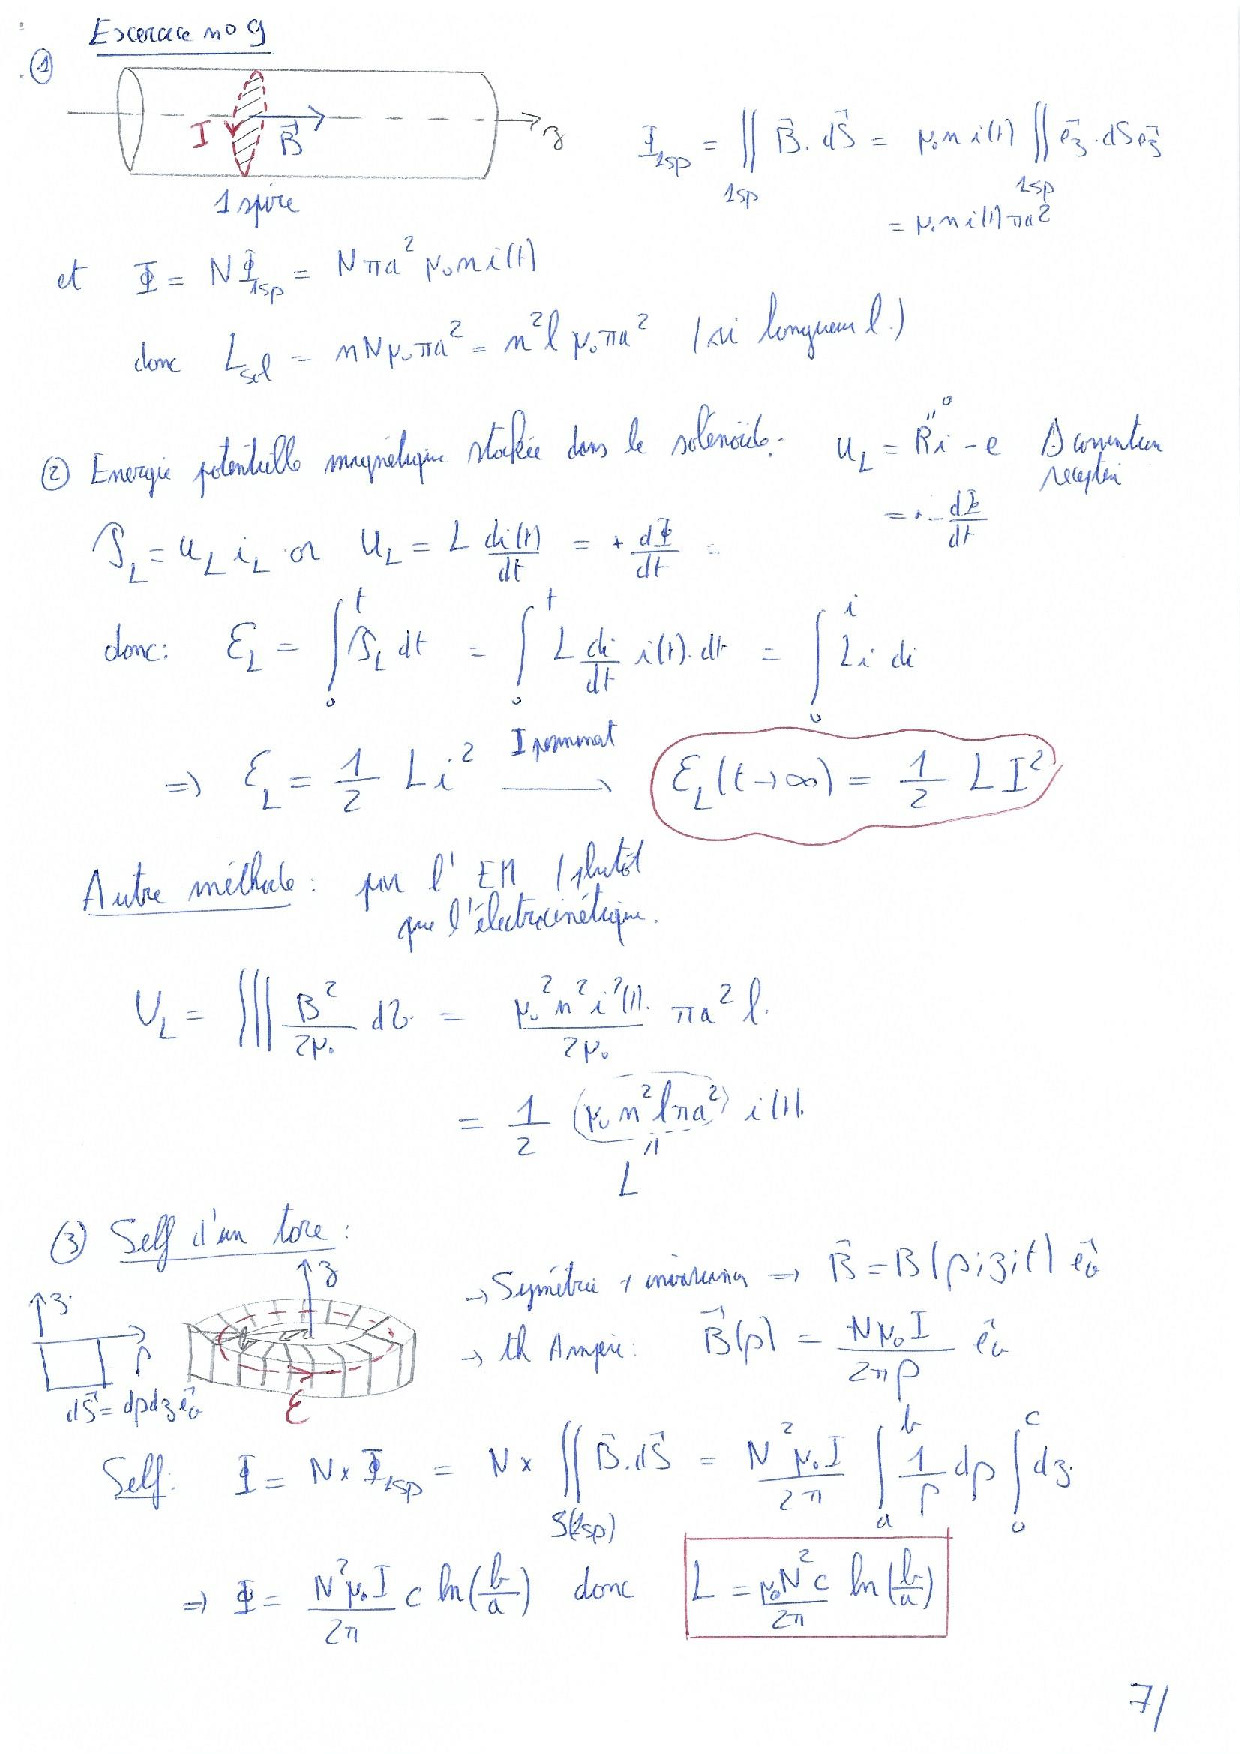 Exercice no 9
①
I
B⃗
z
1 spire
Φ_1sp = ∬_1sp B⃗. dS⃗ = μ₀ n i(t) ∬_1sp e⃗z . dS e⃗z
= μ₀ n i(t) πa²
et Φ = NΦ_1sp = Nπa² μ₀ n i(t)
donc L_sol = nNμ₀πa² = n²l μ₀πa² (si longueur l.)
② Energie potentielle magnétique stockée dans le solénoïde. u_L = Ri - e convention
récepteur
= + - dΦ/dt
P_L = u_L i_L or U_L = L di(t)/dt = + dΦ/dt =
donc: ℰ_L = ∫₀^t P_L dt = ∫₀^t L di/dt i(t). dt = ∫₀^i Li di
⇒ ℰ_L = 1/2 Li² I permanent → ℰ_L(t→∞) = 1/2 LI²
Autre méthode : par l'EM (plutôt
que l'électrocinétique.
U_L = ∭ B²/2μ₀ dτ = μ₀²n²i²(t)/2μ₀ πa² l.
= 1/2 (μ₀ n² l πa²) i(t).
"
L
③ Self d'un tore :
z
→ Symétrie + invariance → B⃗ = B(ρ;z;t) e⃗θ
z
ρ
→ th Ampère: B⃗(ρ) = Nμ₀I/2πρ e⃗θ
dS⃗ = dρdz e⃗θ
C
Self: Φ = N×Φ_1sp = N× ∬_S(1sp) B⃗.dS⃗ = N²μ₀I/2π ∫_a^b 1/ρ dρ ∫_0^c dz.
⇒ Φ = N²μ₀I/2π c ln(b/a) donc L = μ₀N²c/2π ln(b/a)
7/